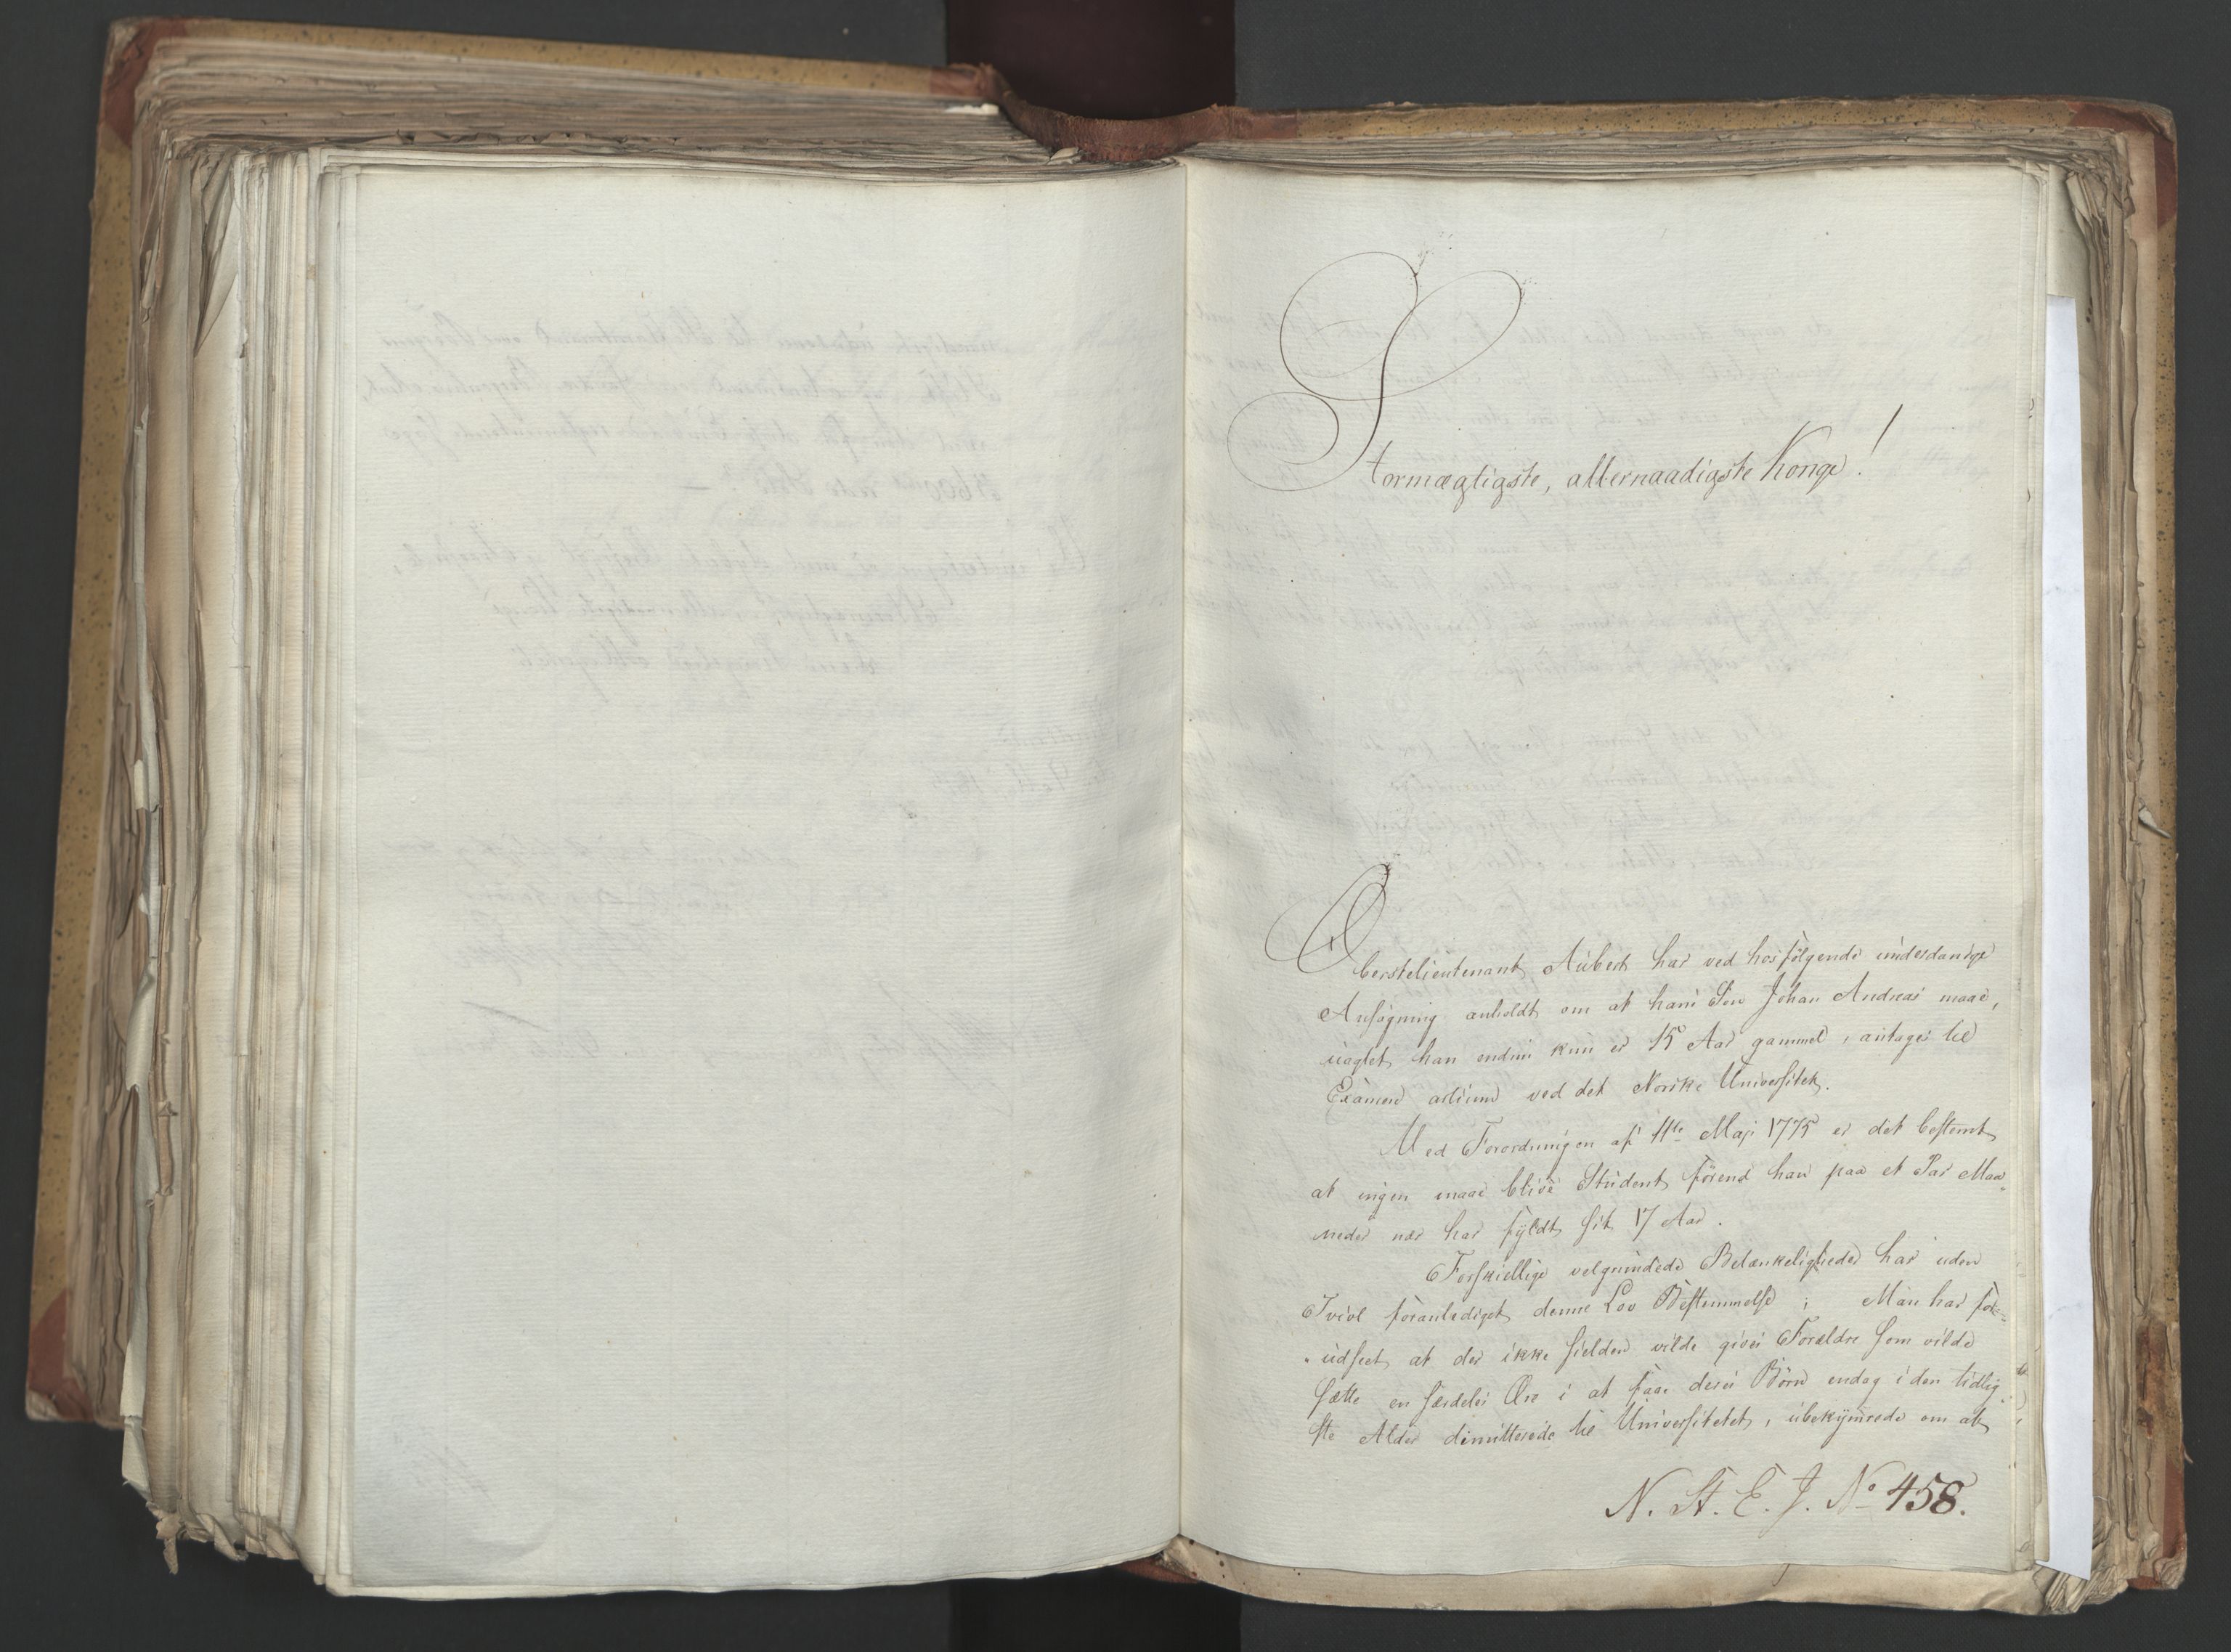 Stormægtigste, allernaadigste Konge!
Oberstelieutenant Aubert har ved hosfølgende underdanige
Ansøgning anholdt om at hans Søn Johan Andreas maae,
uagtet han endnu kun er 15 Aar gammel, antages til
Examen artium ved det Norske Universitet.
Ved Forordningen af 11te Maji 1775 er det bestemt
at ingen maae blive Student förend han paa et Par Maa-
neder nær har fyldt sit 17 Aar.
Forskiellige velgrundede Betænkeligheder har uden
Tvivl foranlediget denne Lov Bestemmelse; Man har for-
udseet at der ikke sielden vilde gives Forældre som vilde
sætte en særdeles Ære i at faae deres Börn endog i den tidlig-
ste Alder dimitterede til Universitetet, ubekymrede om at
N. St. E. J. No 458.